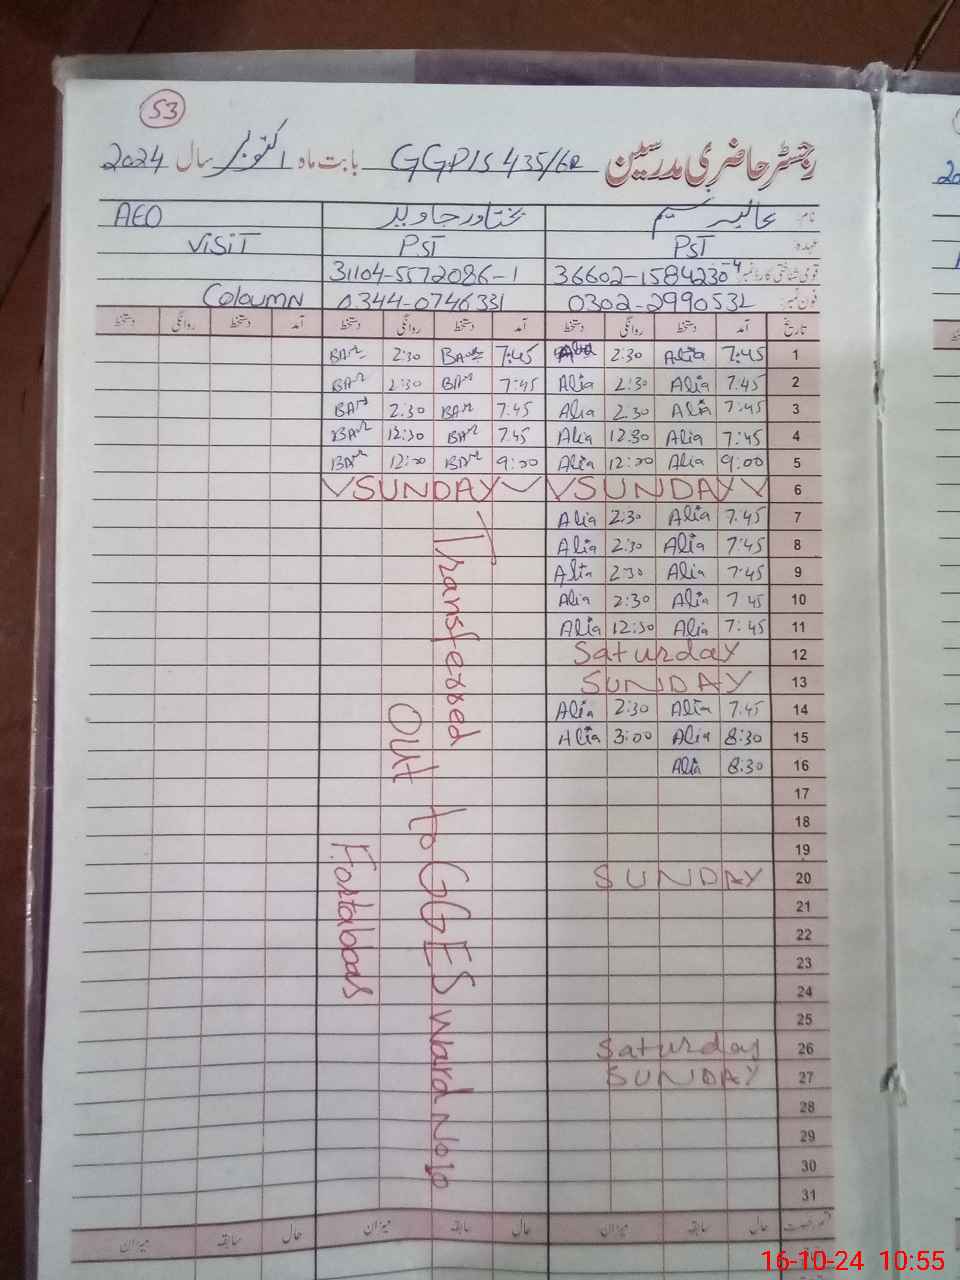 53
رجسٹر حاضری مدرسین GGPIS 435/6R بابت ماہ اکتوبر سال 2024
نام: عالیہ نسیم بختاور جاوید AEO
عہدہ PST PST VISIT
قومی شناختی کارڈ نمبر 36602-1584230-4 31104-5572086-1
فون نمبر: 0302-2990532 0344-0746331 COLOUMN
تاریخ آمد دستخط روانگی دستخط آمد دستخط روانگی دستخط آمد دستخط روانگی دستخط
1 7:45 Alia 2:30 Alia 7:45 2:30
2 7:45 Alia 2:30 Alia 7:45 2:30
3 7:45 Alia 2:30 Alia 7:45 2:30
4 7:45 Alia 12:30 Alia 7:45 12:30
5 9:00 Alia 12:00 Alia 9:00 12:00
6 SUNDAY SUNDAY
7 7:45 Alia 2:30 Alia
8 7:45 Alia 2:30 Alia
9 7:45 Alia 2:30 Alia
10 7:45 Alia 2:30 Alia
11 7:45 Alia 12:30 Alia
12 Saturday
13 SUNDAY
14 7:45 Alia 2:30 Alia
15 8:30 Alia 3:00 Alia
16 8:30 Alia
17
18
19
20 SUNDAY
21
22
23
24
25
26 Saturday
27 SUNDAY
28
29
30
31
Transferred
Out to GGES Ward No 10
Fortabbas
حال سابقہ میزان حال سابقہ میزان حال سابقہ میزان
16-10-24 10:55